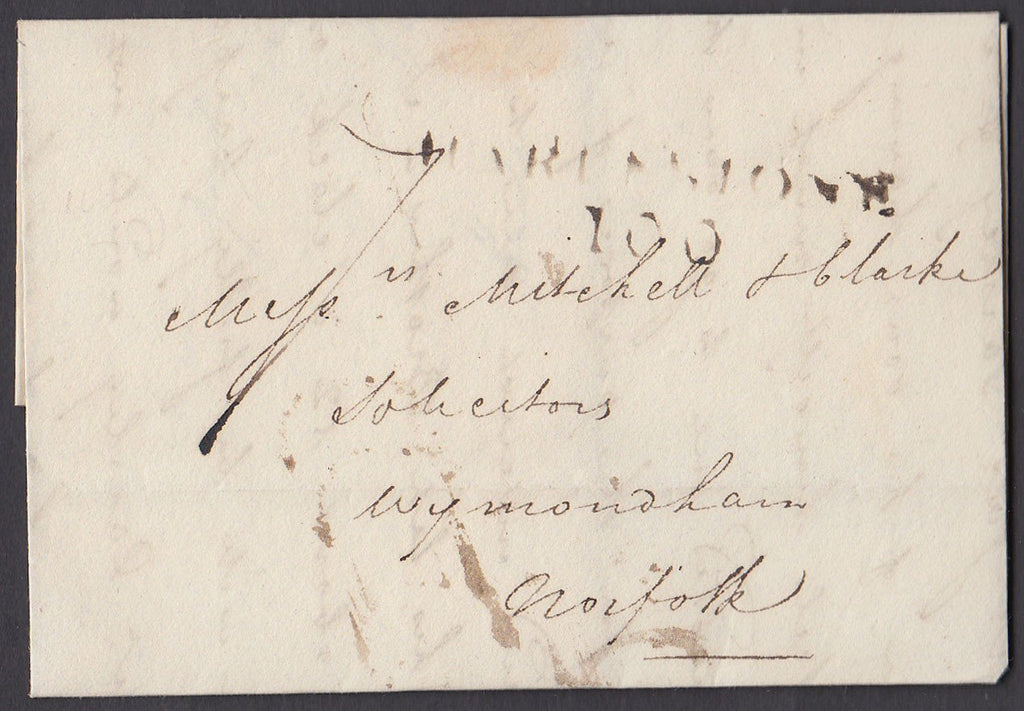 100
7
Messrs Mitchell & Clarke
Solicitors
Wymondham
Norfolk